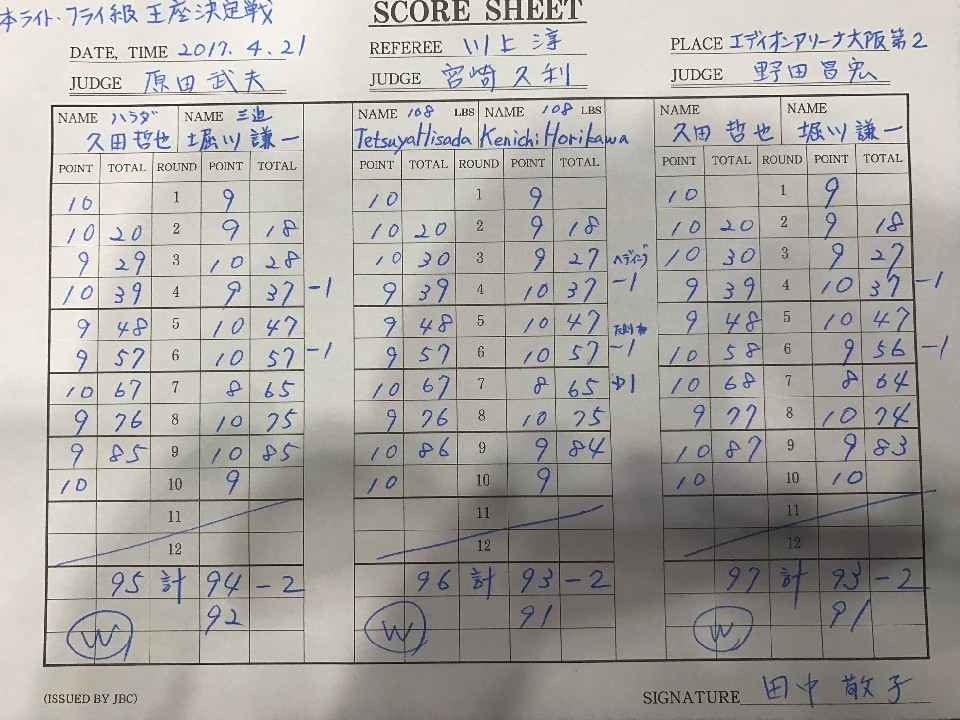 本ライト・フライ級王座決定戦
SCORE SHEET
DATE, TIME 2017. 4. 21 REFEREE 川上 淳 PLACE エディオンアリーナ大阪第2
JUDGE 原田武夫 JUDGE 宮崎久利 JUDGE 野田昌宏
NAME ハラダ NAME 三迫 NAME 108 LBS NAME 108 LBS NAME NAME
久田哲也 堀川謙一 Tetsuya Hisada Kenichi Horikawa 久田 哲也 堀川謙一
POINT TOTAL ROUND POINT TOTAL POINT TOTAL ROUND POINT TOTAL POINT TOTAL ROUND POINT TOTAL
10 1 9 10 1 9 10 1 9
10 20 2 9 18 10 20 2 9 18 10 20 2 9 18
9 29 3 10 28 10 30 3 9 27 10 30 3 9 27
10 39 4 9 37 -1 9 39 4 10 37 -1 9 39 4 10 37 -1
9 48 5 10 47 9 48 5 10 47 9 48 5 10 47
9 57 6 10 57 -1 9 57 6 10 57 -1 10 58 6 9 56 -1
10 67 7 8 65 10 67 7 8 65 D1 10 68 7 8 64
9 76 8 10 75 9 76 8 10 75 9 77 8 10 74
9 85 9 10 85 10 86 9 9 84 10 87 9 9 83
10 10 9 10 10 9 10 10 10
11 11 11
12 12 12
95 計 94 -2 96 計 93 -2 97 計 93 -2
W 92 W 91 W 91
(ISSUED BY JBC) SIGNATURE 田中 敬子